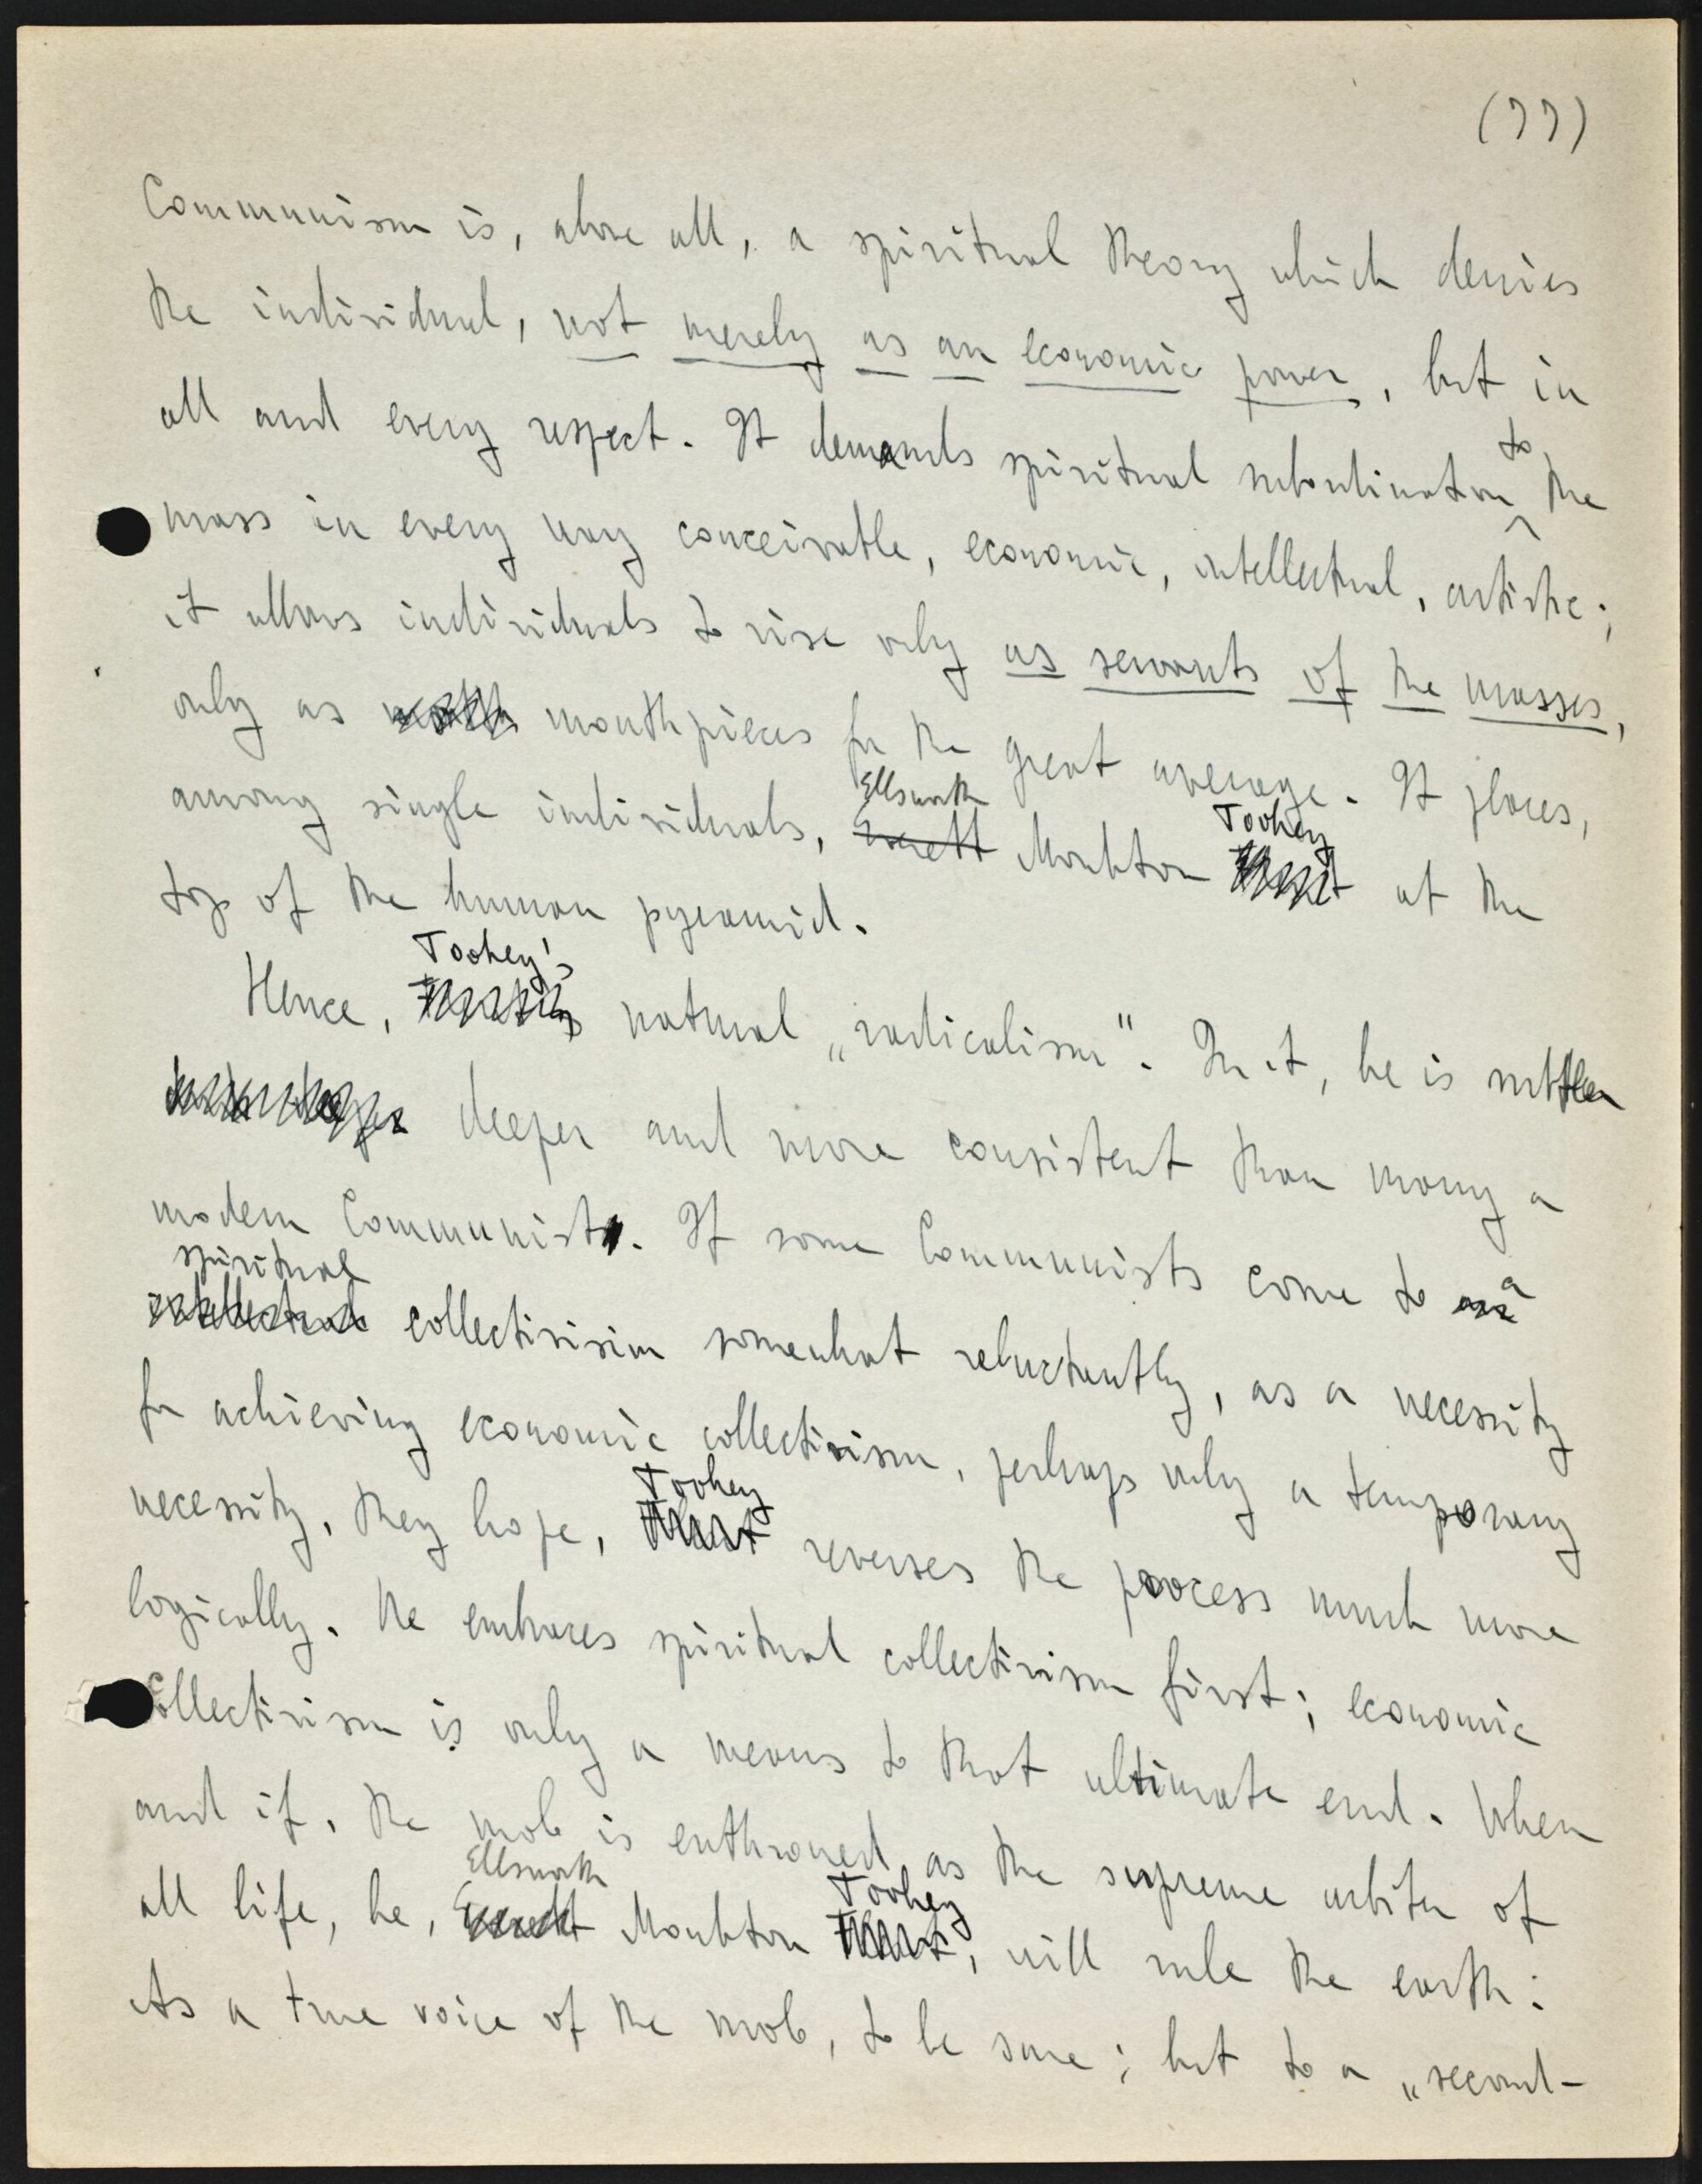 (77)
Communism is, above all, a spiritual theory which denies
the individual, not merely as an economic power, but in
all and every respect. It demands spiritual subordination to the
mass in every way conceivable, economic, intellectual, artistic;
it allows individuals to rise only as servants of the masses,
only as mouthpieces for the great average. It places,
among single individuals, Ellsworth Monkton Toohey at the
top of the human pyramid.
Hence, Toohey's natural „radicalism". In it, he is subtler
deeper and more consistent than many a
modern Communist. If some Communists come to a
spiritual collectivism somewhat reluctantly, as a necessity
for achieving economic collectivism, perhaps only a temporary
necessity, they hope, Toohey reverses the process much more
logically. He embraces spiritual collectivism first; economic
collectivism is only a means to that ultimate end. When
and if, the mob is enthroned as the supreme arbiter of
all life, he, Ellsworth Monkton Toohey, will rule the earth:
As a true voice of the mob, to be sure; but to a „second-